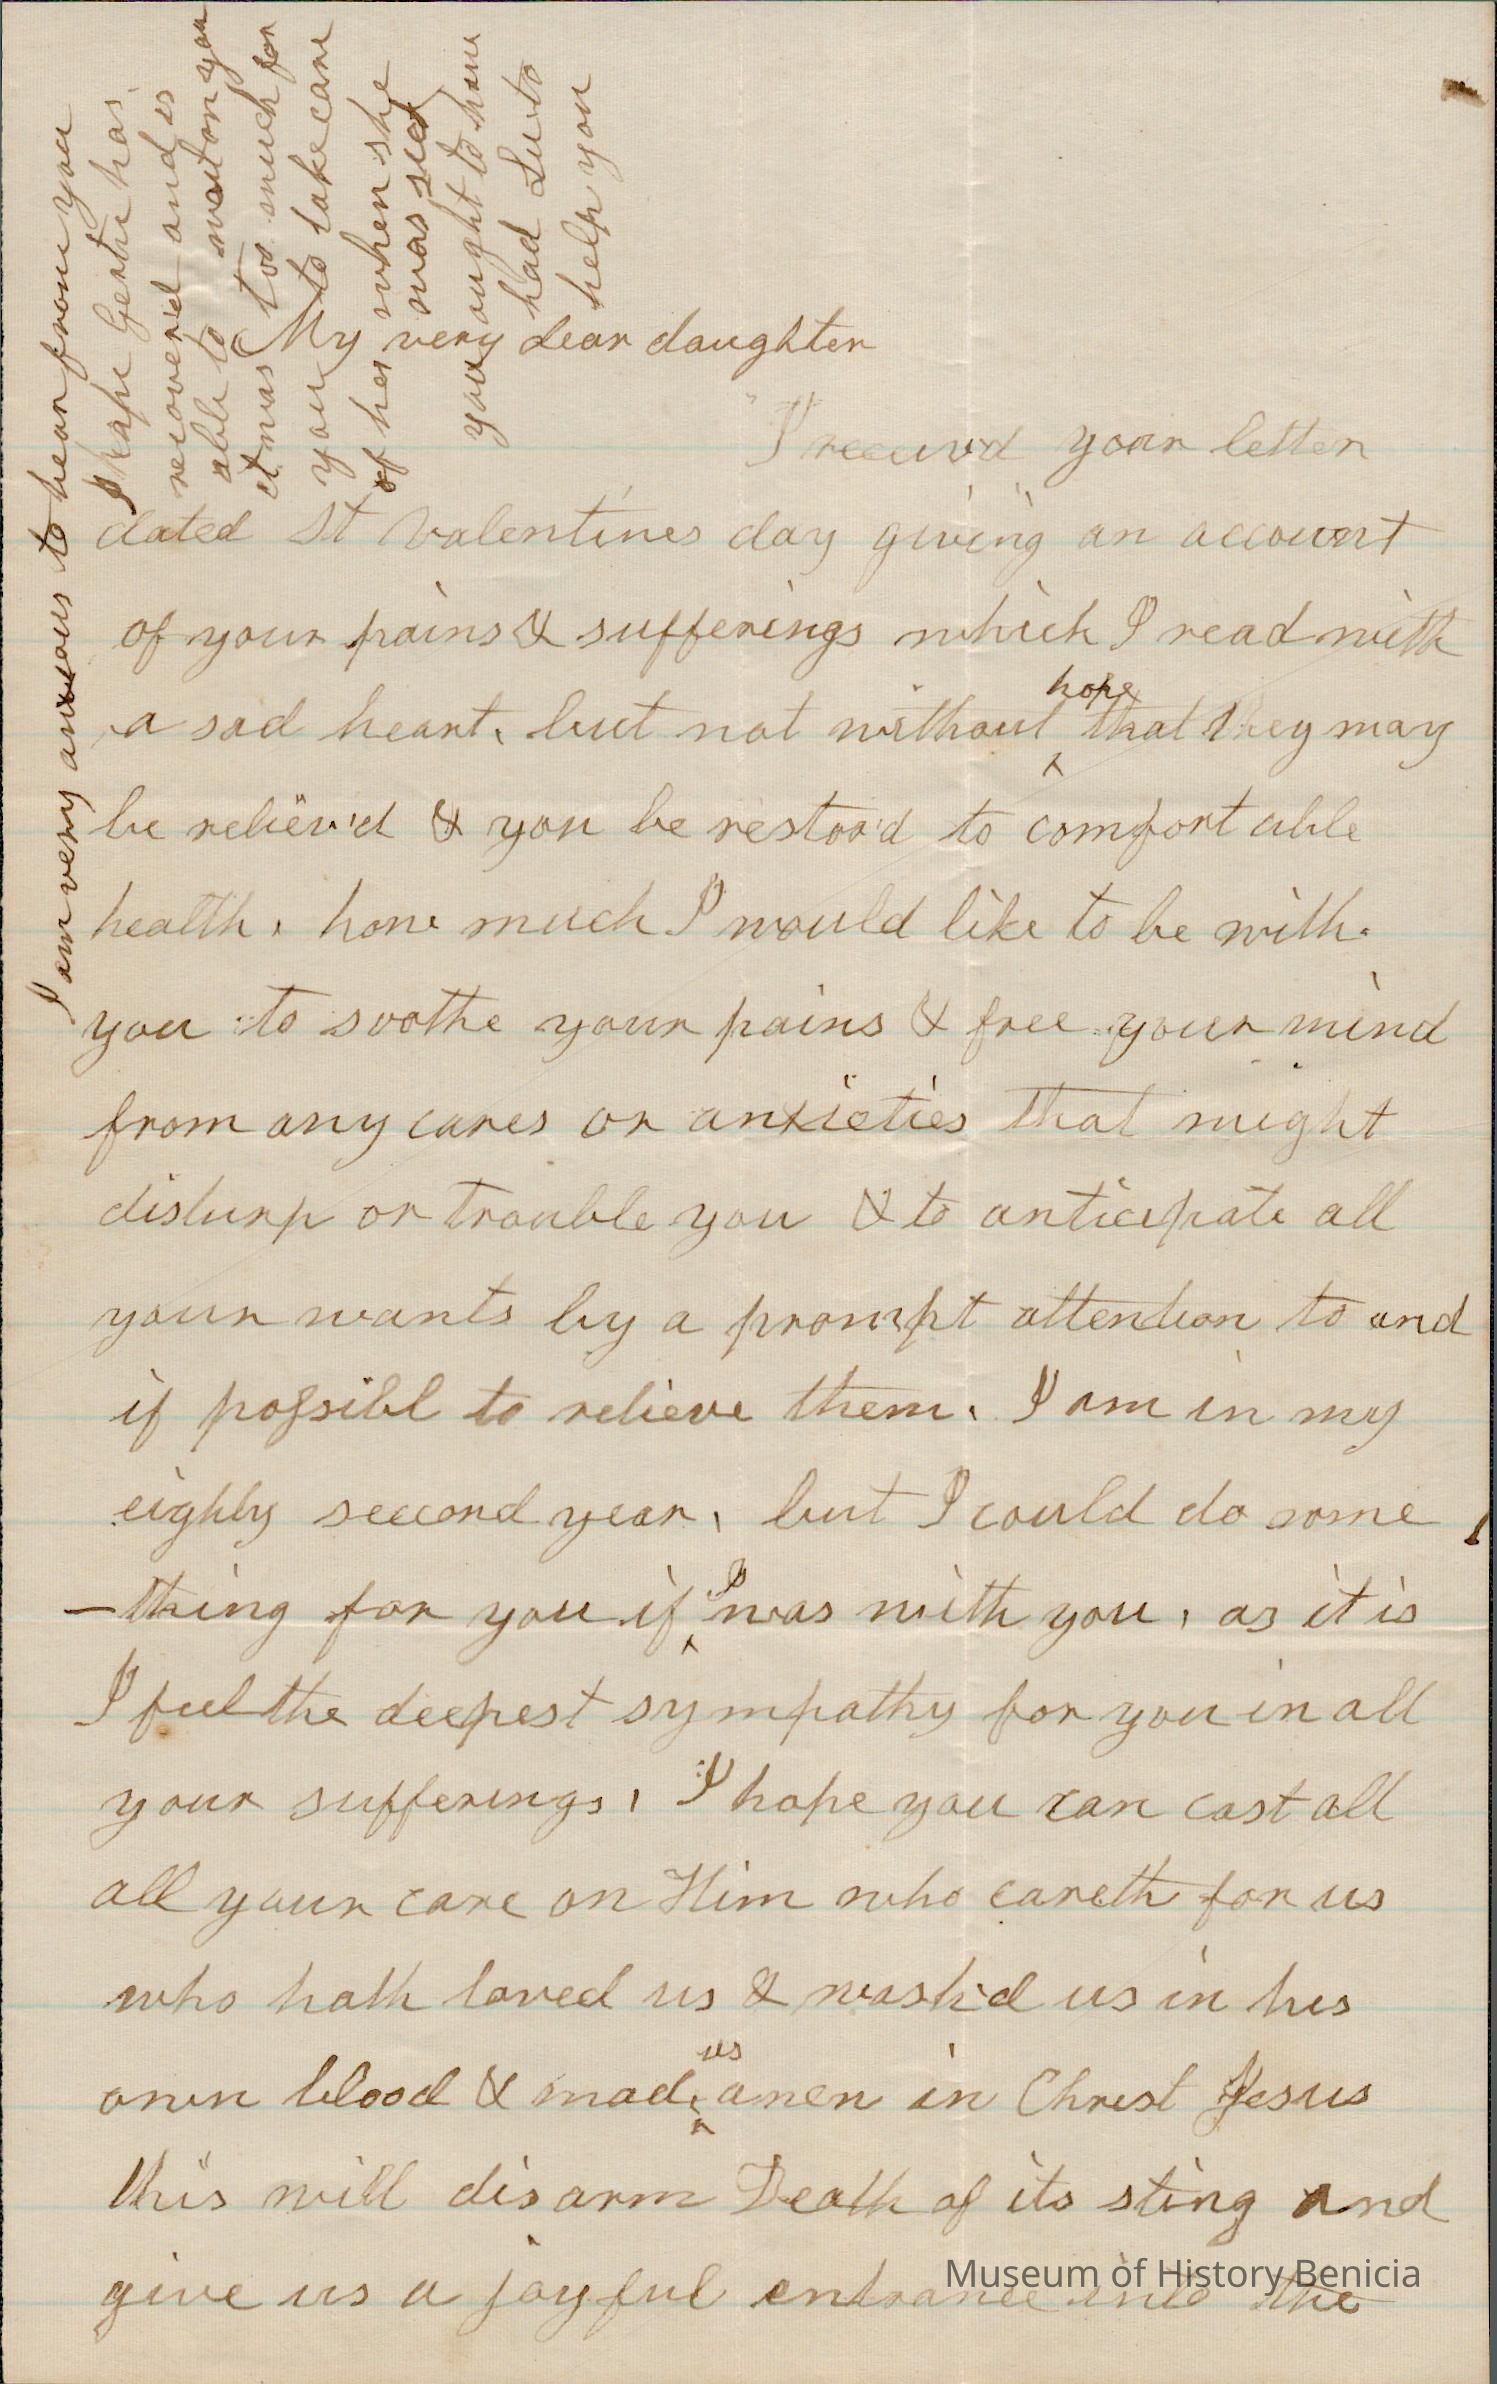 I am very anxious to hear from you
I hope Gertie has
recoverd and is
able to wait on you
it was too much for
you to take care
of her when she
was sick
you ought to have
had Lu to
help you
My very dear daughter
I receivd your letter
dated St Valentines day giving an account
of your pains & sufferings which I read with
a sad heart, but not without hope that they may
be reliev'd & you be restor'd to comfortable
health, how much I would like to be with
you to soothe your pains & free your mind
from any cares or anxieties that might
disturp or trouble you & to anticipate all
your wants by a prompt attention to and
if possibl to relieve them. I am in my
eighty second year, but I could do some
-thing for you if I was with you, as it is
I feel the deepest sympathy for you in all
your sufferings, I hope you can cast all
all your care on Him who careth for us
who hath loved us & wash'd us in his
own blood & made us anen in Christ Jesus
this will disarm Death of its sting and
give us a joyful entrance into the
Museum of History Benicia